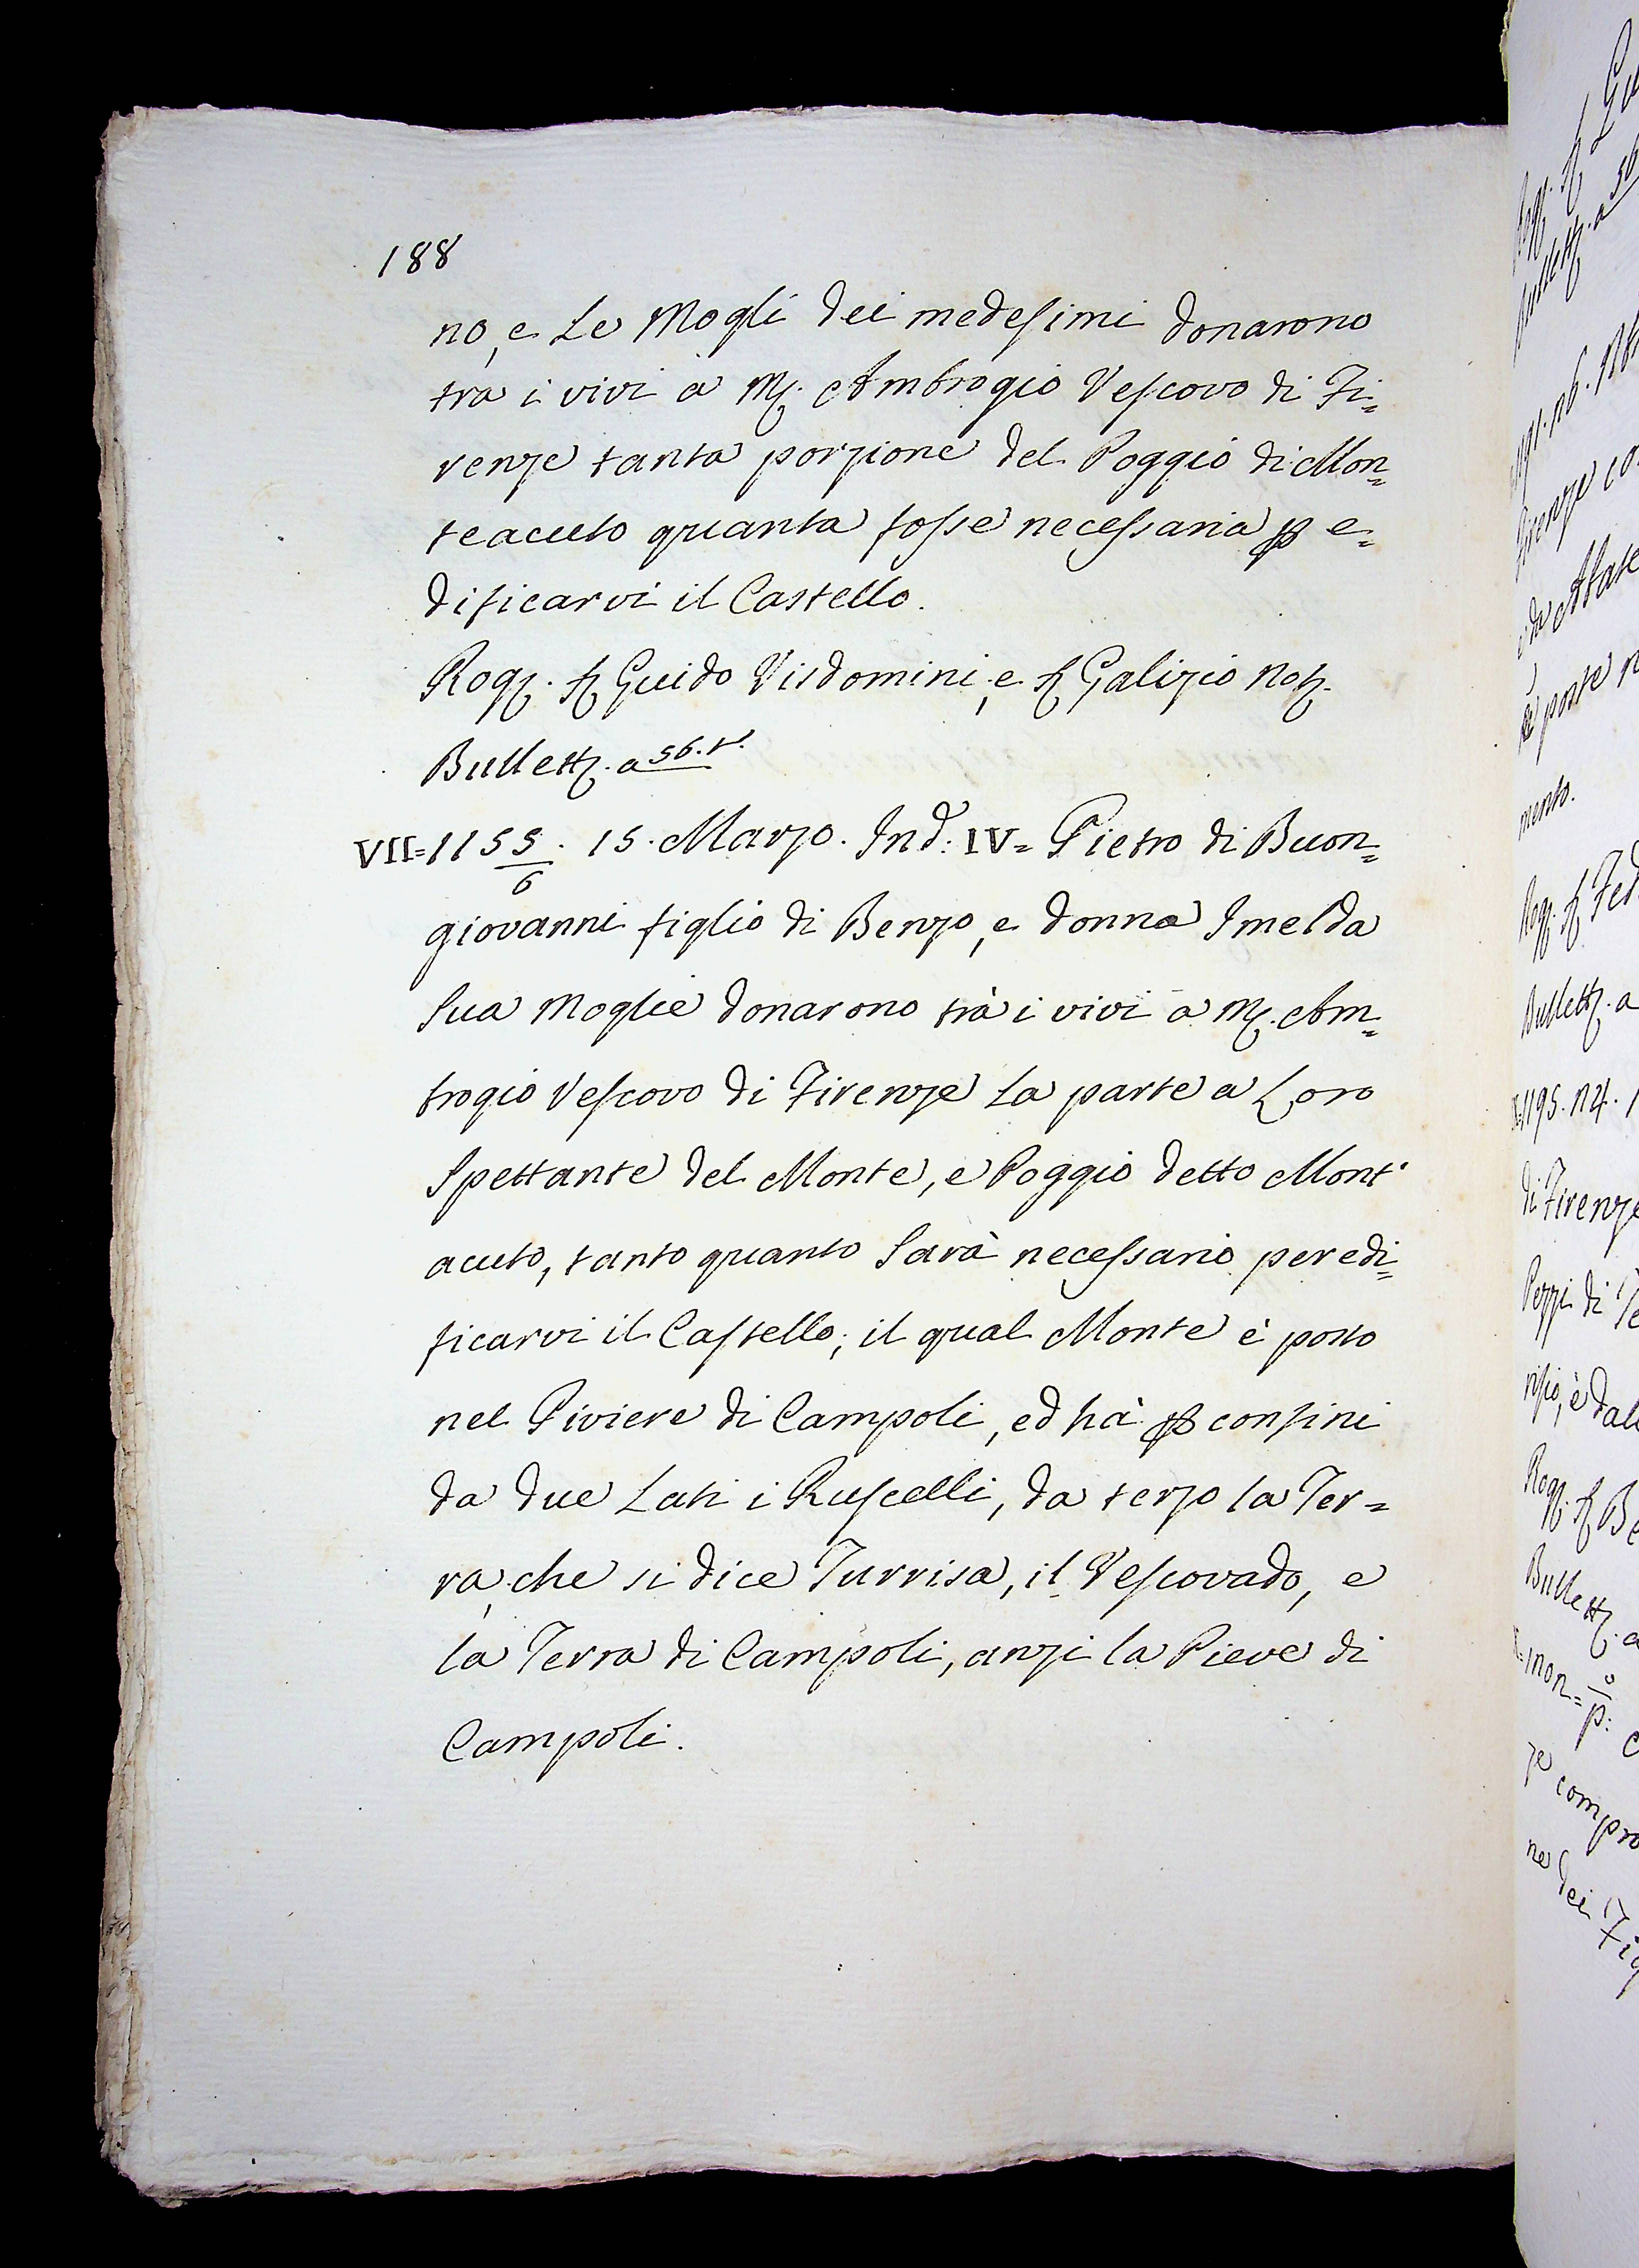 188
no, e Le Mogli dei medesimi donarono
tra i vivi a M. Ambrogio Vescovo di Fi=
renze tanta porzione del Poggio di Mon=
teacuto quanta fosse necessaria ꝑ e=
dificarvi il Castello.
Rog. S. Guido Visdomini, e S. Galizio Not.
Bullett. a 56. t.
VII = 1155/6. 15. Marzo. Ind: IV = Pietro di Buon=
giovanni figlio di Benzo, e donna Imelda
Sua Moglie donarono trà i vivi a M. Am=
brogio Vescovo di Firenze La parte a Loro
Spettante del Monte, e Poggio detto Mont'
acuto, tanto quanto Sarà necessario per edi=
ficarvi il Castello; il qual Monte è posto
nel Piviere di Campoli, ed hà ꝑ confini
da due Lati i Ruscelli, da terzo la Ter=
ra, che si dice Turrisa, il Vescovado, e
la Terra di Campoli, anzi la Pieve di
Campoli.
renze co
Abate
poste n
mento.
Bullett. a
1195. n4.
di Firenze
Pezzi di Te
Bullett. a
ze compro
ne dei Fig